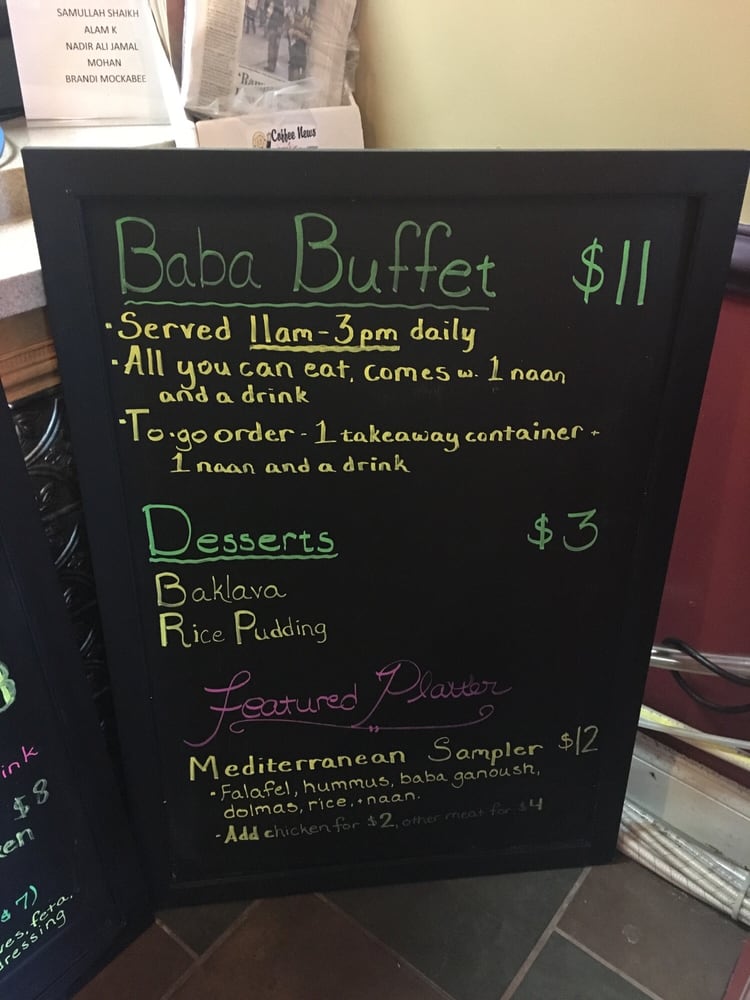 SAMULLAH SHAIKH
ALAM K
NADIR ALI JAMAL
MOHAN
BRANDI MOCKABEE
Coffee News
Baba Buffet $11
·Served 11am-3pm daily
·All you can eat, comes w. 1 naan
and a drink
·To-go order - 1 takeaway container +
1 naan and a drink
Desserts $3
Baklava
Rice Pudding
Featured Platter
Mediterranean Sampler $12
·Falafel, hummus, baba ganoush,
dolmas, rice, +naan.
-Add chicken for $2, other meat for $4
ink
$8
feta,
dressing